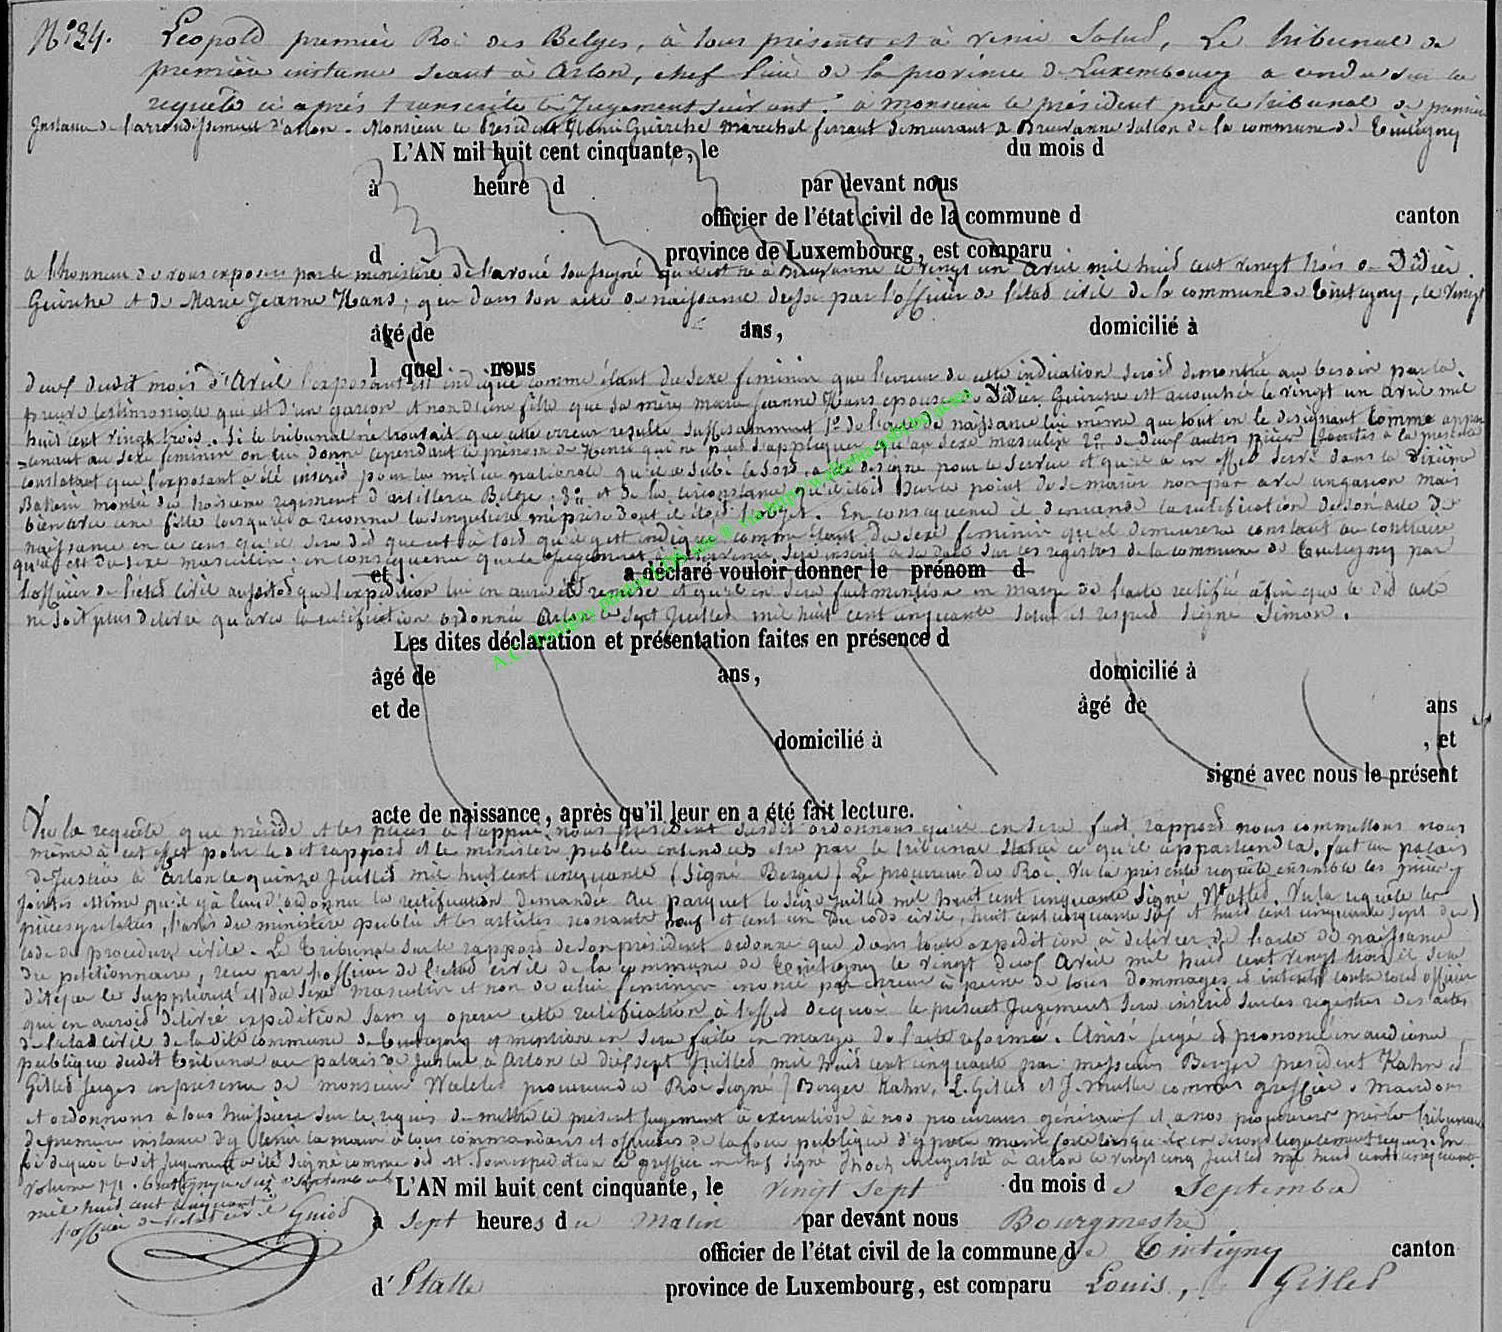 N° 34. Leopold premier Roi des Belges, à tous présents et à venir Salud, Le tribunal de
première instance séant à Arlon, chef lieu de la province de Luxembourg a rendu sur la
requête ci après transcrite le Jugement suivant : à monsieur le président près le tribunal de première
Instance de l'arrondissement d'arlon. Monsieur le President Henri Guirche marechal ferrant demeurant à Breuvanne section de la commune de Tintigny
L'AN mil huit cent cinquante, le du mois d
à heure d par devant nous
officier de l'état civil de la commune d canton
d province de Luxembourg, est comparu
a l'honneur de vous exposer par le ministère de l'avoué soussigné qu'il est né à Breuvanne le vingt un avril mil huid cent vingt trois de Didier
Guirche et de Marie Jeanne Hans ; que dans son acte de naissance dressé par l'officier de l'etad civil de la commune de Tintigny, le vingt
âgé de ans, domicilié à
l quel nous
deux dudit mois d'Avril l'exposant est indiqué comme étant du sexe feminin que l'erreur de cette indication seroid demontrée au besoin par la
preuve testimoniale qui est d'un garçon et non d'une fille que sa mère marie jeanne Hans epouse de Didier Guirche est accouchée le vingt un avril mil
huit cent vingt trois. Si le tribunal ne trouvait que cette erreur resulte suffisamment 1° de l'acte de naissance lui même que tout en le designant comme appar
-tenant au sexe feminin on lui donne cependant le prénom de Henri qui ne peut s'appliquer qu'au sexe masculin 2° de deux autres pièces jointes à la présente
constatant que l'exposant a été inscrid pour la milice nationale qu'il a subi le sord, a été designé pour le service et qu'il a en effet servi dans la dixième
Batterie montée du troisième regiment d'artillerie Belge ; 3° et de la circonstance qu'il étoit sur le point de se marier non pas avec un garçon mais
bien avec une fille lorsqu'il a reconnu la singulière méprise dont il étoit l'objet. En consequence il demande la rectification de son acte de
naissance en ce sens qu'il sera did que c'est à tord qu'il y est indiqué comme étant du sexe feminin qu'il demeurera constant au contraire
qu'il est du sexe masculin ; en consequence que le jugement à intervenir sera inscrit à sa date sur les registres de la commune de Tintigny par
et a déclaré vouloir donner le prénom d
l'officier de l'etad civil aussitod que l'expedition lui en aura été remise et qu'il en sera fait mention en marge de l'acte rectifié afin que le did acte
ne soit plus delivré qu'avec la rectification ordonnée Arlon le sept Juilled mil huit cent cinquante salut et respect signé Simon.
A.C. Tintigny photos LDS site ® via http://wallonia-asbl.be/actes
Les dites déclaration et présentation faites en présence d
âgé de ans, domicilié à
et de âgé de ans
domicilié à , et
signé avec nous le présent
acte de naissance, après qu'il leur en a été fait lecture.
Vu la requête que précède et les pièces à l'appui, nous president susdit ordonnons qu'il en sera fait rapport nous commettons nous
même à cet effet pour le dit rapport et le ministère public entendus être par le tribunal statué ce qu'il appartiendra. fait au palais
de Justice à Arlon le quinze Juillet mil huit cent cinquante (Signé Berger) Le procureur du Roi, Vu la présente requête ensemble les pièces y
jointes estime qu'il y a lieu d'ordonner la rectification demandée Au parquet le seize juillet mil huit cent cinquante signé, Watled. Vu la requête les
pièces y relatives, l'avis du ministère public et les articles nonante neuf et cent un du code civil, huit cent cinquante six et huit cent cinquante sept du
code de procedure civile. Le Tribunal sur le rapport de son président ordonne que dans toute expedition à delivrer de l'acte de naissance
du petitionnaire, reçu par l'officier de l'etad civil de la commune de Tintigny le vingt deux Avril mil huid cent vingt trois il sera
dit que le suppliant est du sexe masculin et non de celui feminin enoncé par erreur à peine de tous dommages et interets contre tous officier
qui en auroid delivré expedition sans y operer cette rectification à l'effet de quoi le présent Jugement sera inscrid sur les registres des actes
de l'etad civil de la dite commune de Tintigny et mention en sera faite en marge de l'acte reformé. Ainsi jugé et prononcé en audience
publique dudit tribunal au palais de Justice à Arlon le dix sept Juilled mil huid cent cinquante par messieurs Berger president Kahn et
Gilled juges en presence de monsieur Watled procureur du Roi Signé / Berger Kahn, L. Gilled et J. Muller commis greffier. Mandons
et ordonnons à tous huissiers sur ce requis de mettre le présent jugement à execution à nos procureurs généraux et a nos procureurs près les tribunaux
de première instance d'y tenir la main à tous commandants et officiers de la force publique d'y preter main forte lorsqu'ils en seront legalement requis. En
foi de quoi le dit Jugement a été signé comme did est. Pour expedition le greffier en chef signé enregistré à Arlon le vingt cinq Juilled mil huid cent cinquante
volume 171. Tintigny le six septembre
mil huid cent cinquante
l'officier de l'etat civil Guiod
L'AN mil huit cent cinquante, le vingt sept du mois de Septembre
à sept heures du Matin par devant nous Bourgmestre
officier de l'état civil de la commune de Tintigny canton
d'Etalle province de Luxembourg, est comparu Louis, Gilled